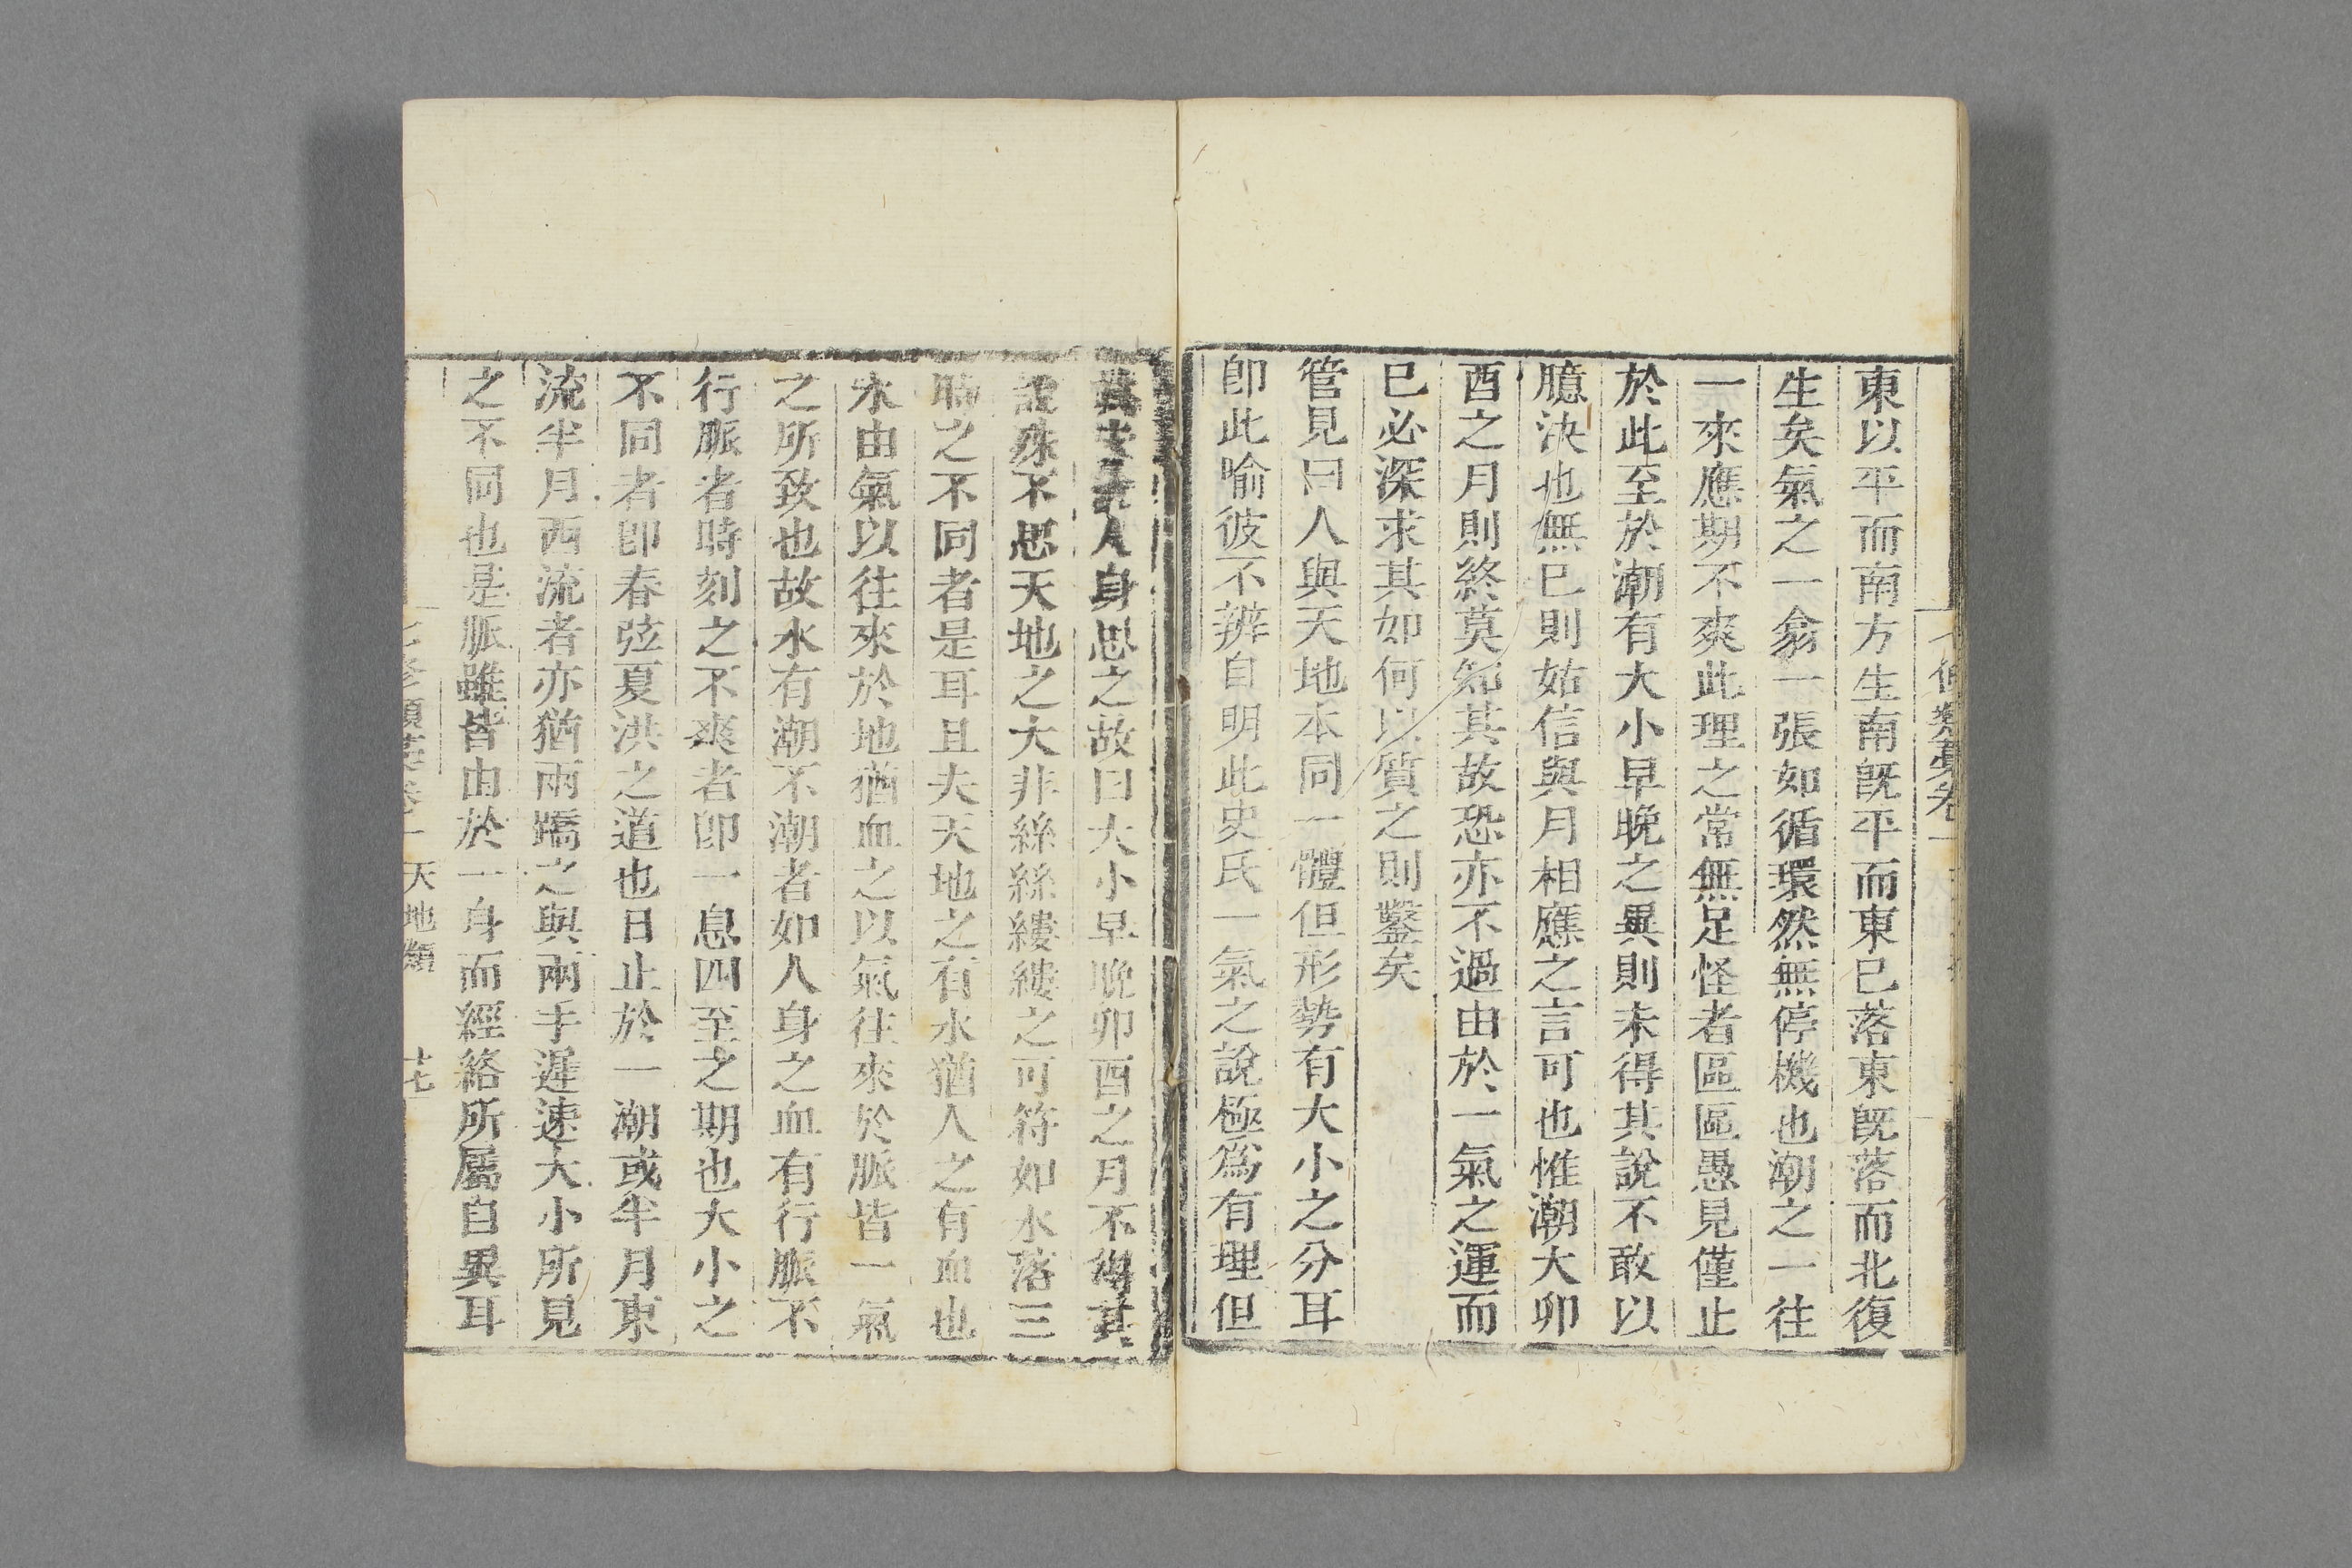 七修類藁卷一
東以平而南方生南既平而東已落東既落而北復
生矣氣之一翕一張如循環然無停機也潮之一往
一來應期不爽此理之常無足怪者區區愚見僅止
於此至於潮有大小早晚之異則未得其說不敢以
臆決也無已則姑信與月相應之言可也惟潮大卯
酉之月則終莫知其故恐亦不過由於一氣之運而
已必深求其如何以質之則鑿矣
管見曰人與天地本同一體但形勢有大小之分耳
卽此喻彼不辨自明此史氏一氣之說極爲有理但
人身思之故曰大小早晚卯酉之月不得其
說殊不思天地之大非絲絲縷縷之可符如水落三
時之不同者是耳且夫天地之有水猶人之有血也
水由氣以往來於地猶血之以氣往來於脈皆一氣
之所致也故水有潮不潮者如人身之血有行脈不
行脈者時刻之不爽者卽一息四至之期也大小之
不同者卽春弦夏洪之道也日止於一潮或半月東
流半月西流者亦猶兩蹻之與兩手遲速大小所見
之不同也是脈雖皆由於一身而經絡所屬自異耳
七修類藁卷一 天地類 十七